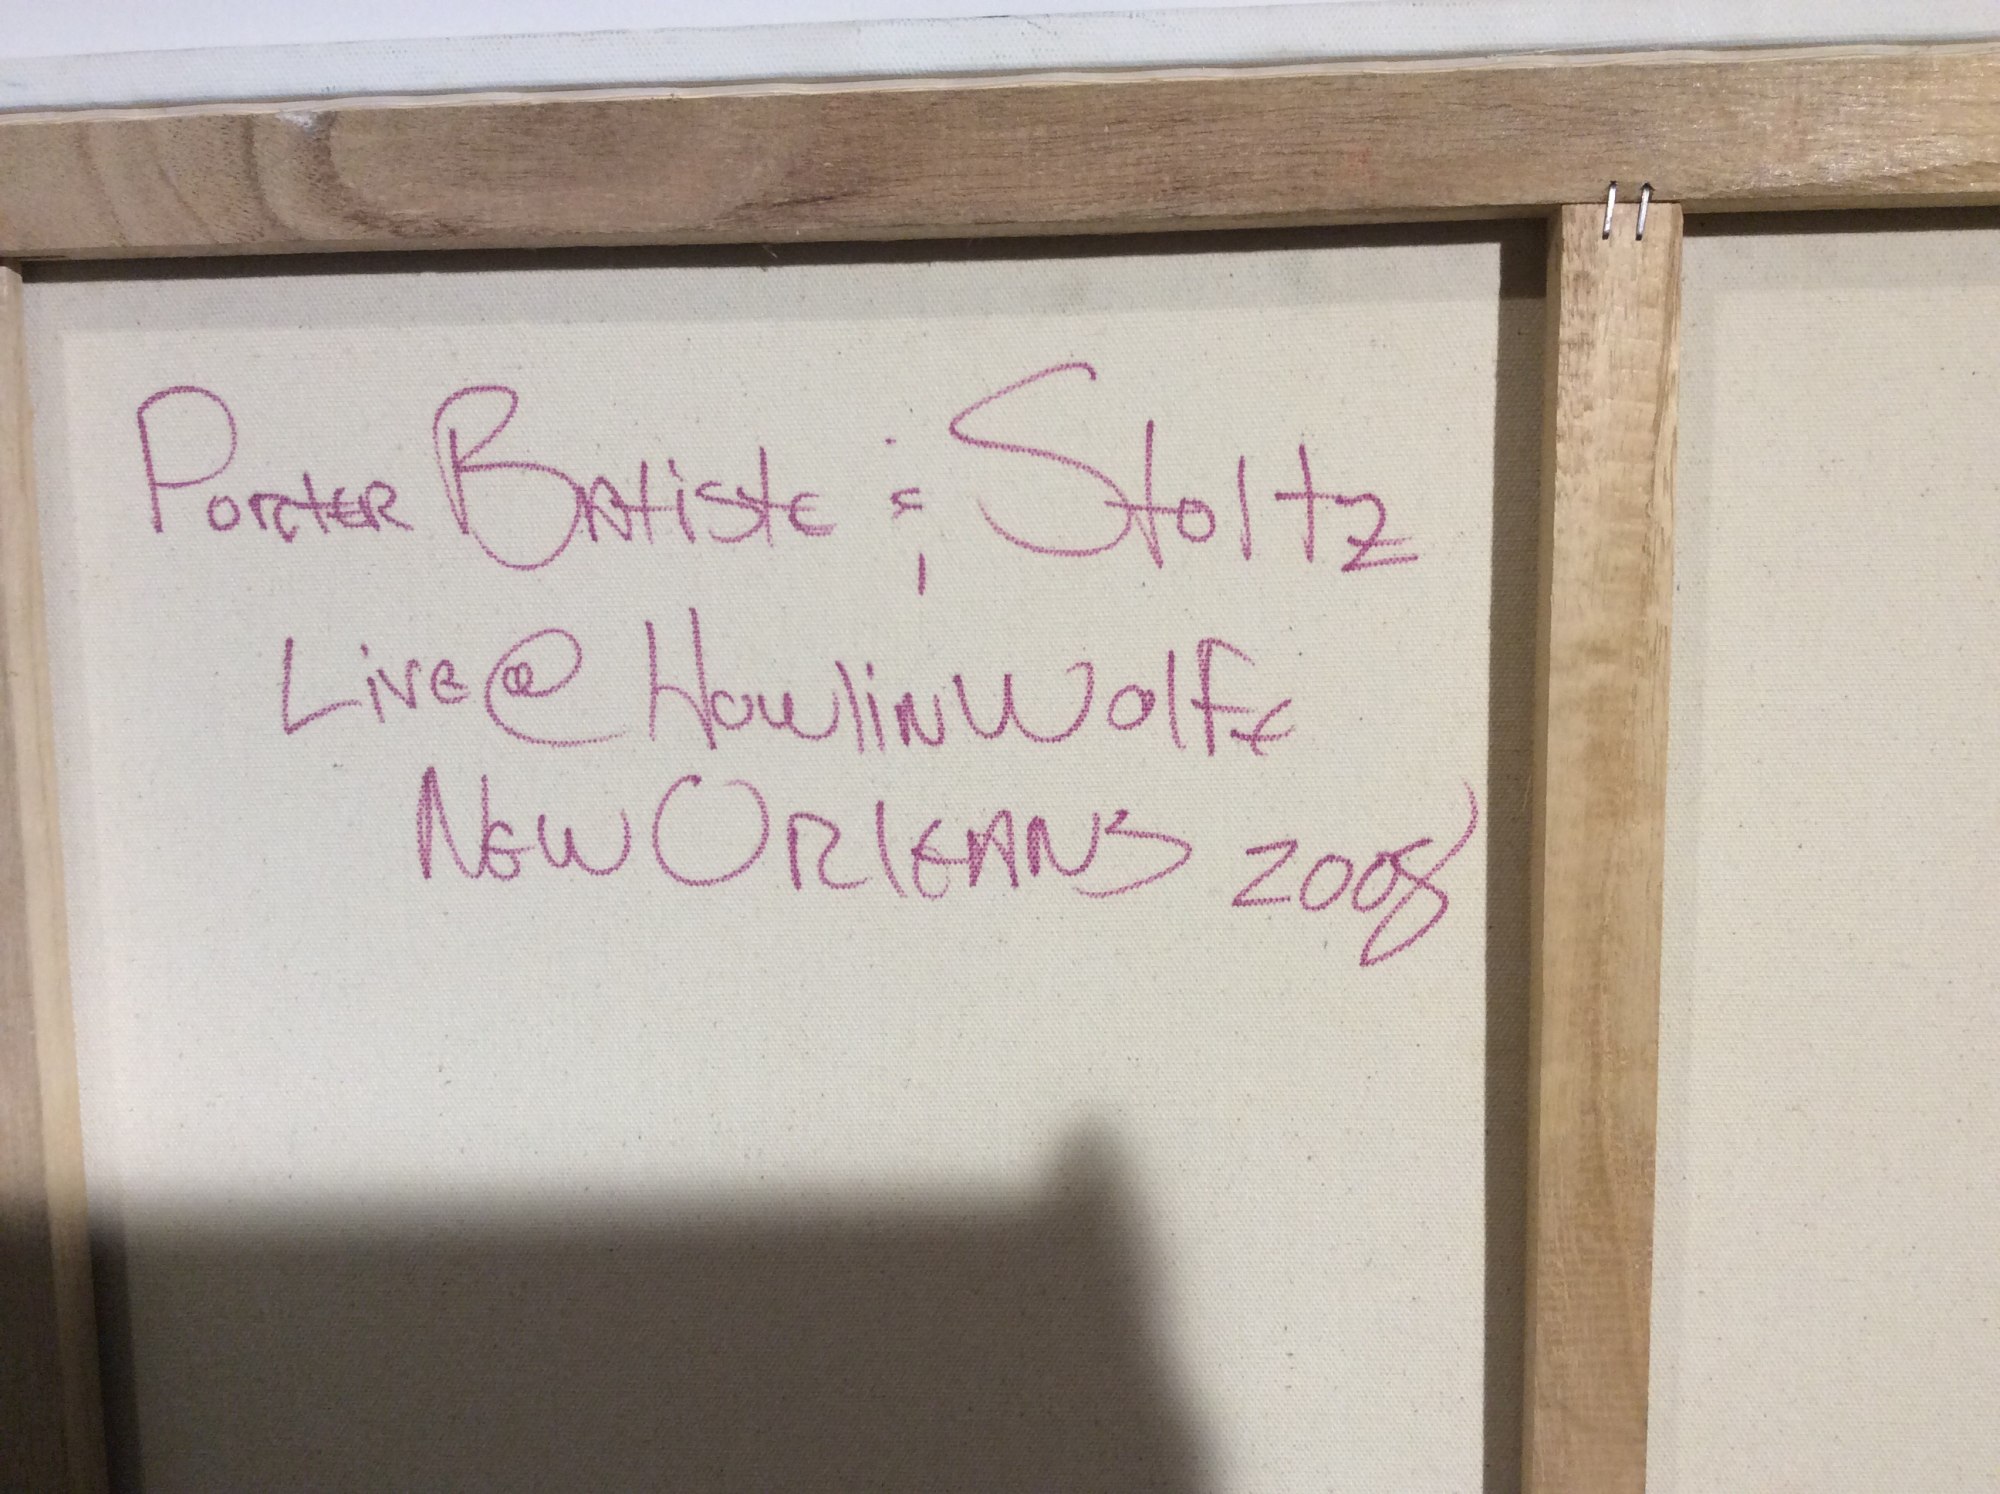 Porter Batiste & Stoltz
Live @ Howlin Wolfe
New Orleans 2008